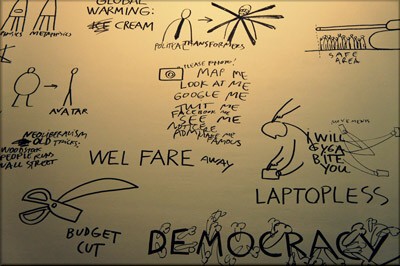 GLOBAL
WARMING:
ICE CREAM
METAPHICS
POLITEA TRANSFORMERS
SAFE
AREA
PLEASE PHOTO!
MAP ME
LOOK AT ME
GOOGLE ME
FACEBOOK ME
SEE ME
NOTICE ME
MAKE ME
FAMOUS
AVATAR
NEOLIBERALISM
OLD TIMERS:
WOODSTOCK
PEOPLE RUN
WALL STREET
WEL FARE AWAY
I WILL
BITE
YOU
LAPTOPLESS
BUDGET
CUT
DEMOCRACY